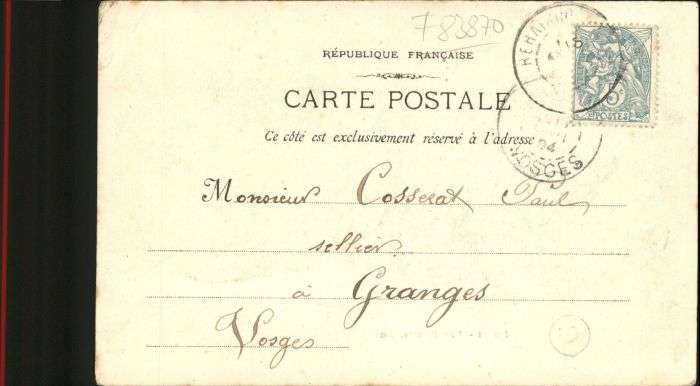 783870
RÉPUBLIQUE FRANÇAISE
CARTE POSTALE
Ce côté est exclusivement réservé à l'adresse
POSTES
VOSGES
Monsieur Cosserat Paul
sellier
à Granges
Vosges